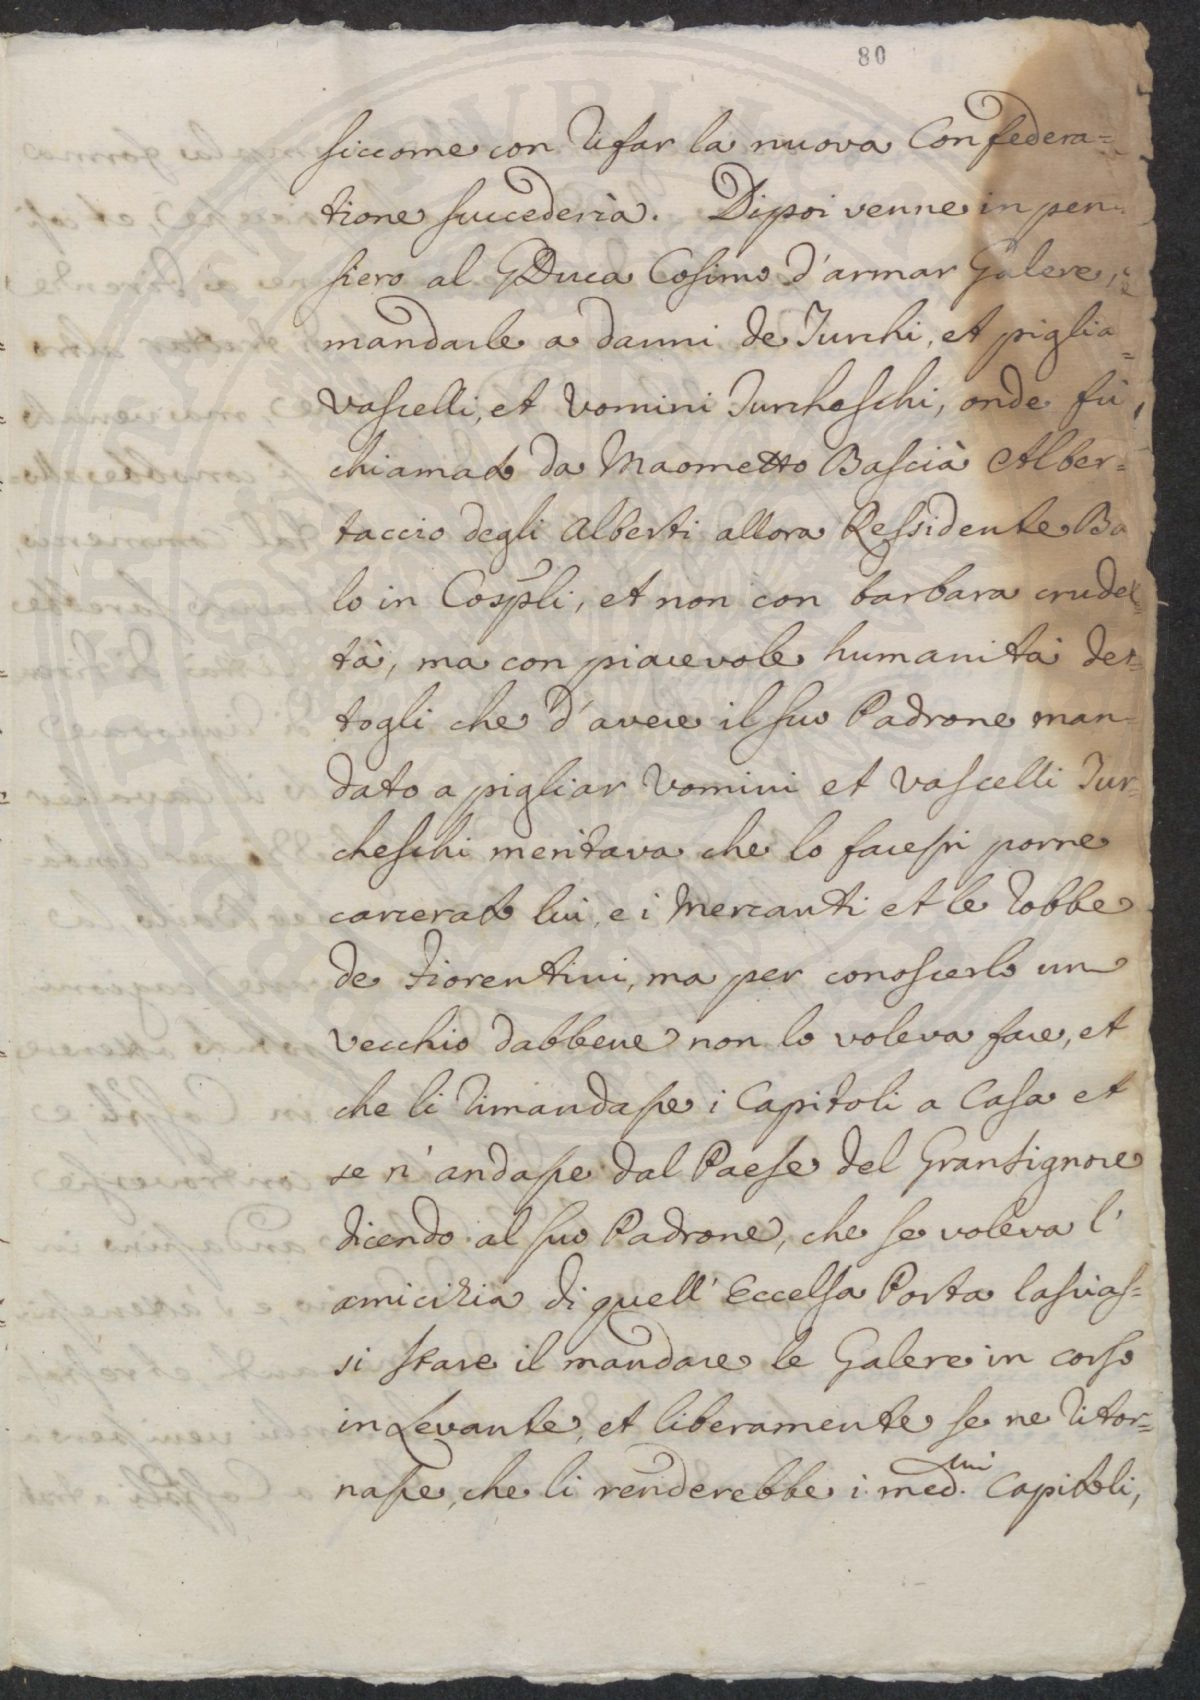 80
siccome con rifar la nuova Confedera=
tione succederia. Dipoi venne in pen=
siero al GDuca Cosimo d'armar Galere, e
mandarle a danni de Turchi, et piglia=
vascelli, et vomini Turcheschi, onde fù
chiamato da Maometto Bascià Alber=
taccio degli Alberti allora Ressidente Ba
lo in Cospli, et non con barbara crudel=
tà, ma con piacevole humanità det=
togli che d'avere il suo Padrone man=
dato a pigliar vomini et vascelli Tur=
cheschi meritava che lo facessi porre
carcerato lui, e i Mercanti et le robbe
de Fiorentini, ma per conoscerlo un
vecchio dabbene non lo voleva fare, et
che li rimandasse i Capitoli a Casa et
se n'andasse dal Paese del Gransignore
dicendo al suo Padrone, che se voleva l'
amicizia di quell'Eccelsa Porta lasciàs=
si stare il mandare le Galere in corso
in Levante, et liberamente se ne ritor=
nasse, che li renderebbe i med.mi Capitoli,